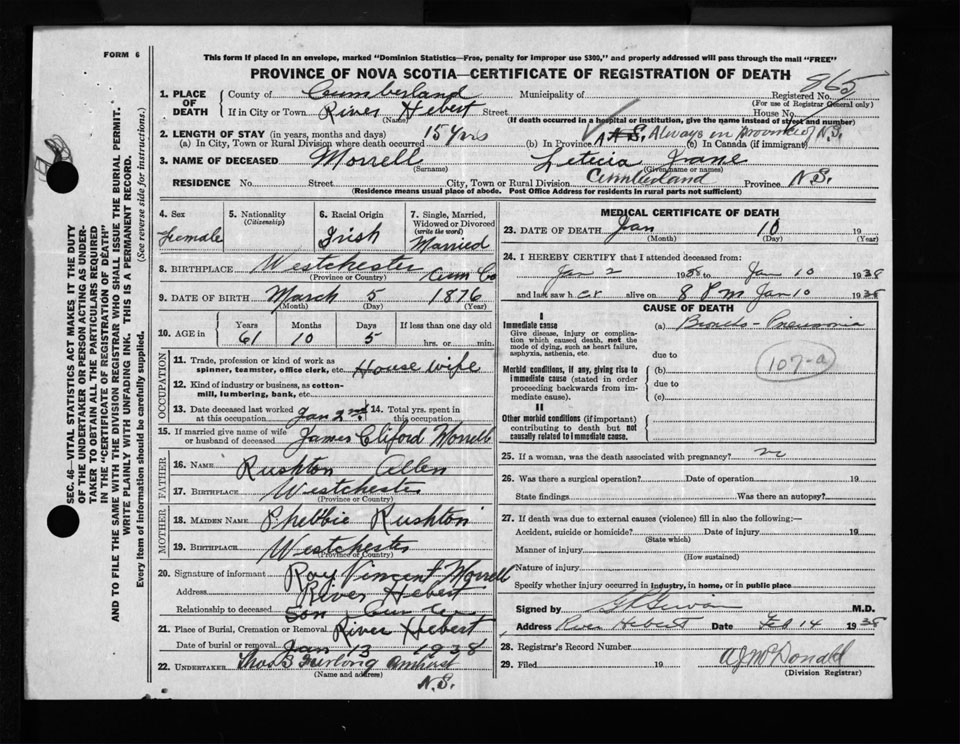 FORM 6
This form if placed in an envelope, marked "Dominion Statistics—Free, penalty for improper use $300," and properly addressed will pass through the mail "FREE"
PROVINCE OF NOVA SCOTIA—CERTIFICATE OF REGISTRATION OF DEATH
865
SEC. 46—VITAL STATISTICS ACT MAKES IT THE DUTY
OF THE UNDERTAKER OR PERSON ACTING AS UNDER-
TAKER TO OBTAIN ALL THE PARTICULARS REQUIRED
IN THE "CERTIFICATE OF REGISTRATION OF DEATH"
AND TO FILE THE SAME WITH THE DIVISION REGISTRAR WHO SHALL ISSUE THE BURIAL PERMIT.
WRITE PLAINLY WITH UNFADING INK. THIS IS A PERMANENT RECORD.
Every item of information should be carefully supplied.
(See reverse side for instructions.)
1. PLACE OF DEATH
County of Cumberland Municipality of Registered No.
(For use of Registrar General only)
If in City or Town River Hebert Street House No.
(Name) (If death occurred in a hospital or institution, give the name instead of street and number)
2. LENGTH OF STAY (in years, months and days)
(a) In City, Town or Rural Division where death occurred 15 yrs (b) In Province Always in province of N.S. (c) In Canada (if immigrant)
3. NAME OF DECEASED Morrell Leticia Jane
(Surname) (Given name or names)
RESIDENCE No. Street City, Town or Rural Division Cumberland Province N.S.
(Residence means usual place of abode. Post Office Address for residents in rural parts not sufficient)
4. Sex Female
5. Nationality (Citizenship)
6. Racial Origin Irish
7. Single, Married, Widowed or Divorced (write the word) Married
8. BIRTHPLACE Westchester Cum Co
(Province or Country)
9. DATE OF BIRTH March 5 1876
(Month) (Day) (Year)
10. AGE in Years 61 Months 10 Days 5 If less than one day old hrs. or min.
OCCUPATION
11. Trade, profession or kind of work as spinner, teamster, office clerk, etc. House wife
12. Kind of industry or business, as cotton-mill, lumbering, bank, etc.
13. Date deceased last worked at this occupation Jan 2nd
14. Total yrs. spent in this occupation
15. If married give name of wife or husband of deceased James Cliford Morrell
FATHER
16. NAME Rushton Allen
17. BIRTHPLACE Westchester
(Province or Country)
MOTHER
18. MAIDEN NAME Phebbie Rushton
19. BIRTHPLACE Westchester
(Province or Country)
20. Signature of informant Roy Vincent Morrell
Address River Hebert
Relationship to deceased Son Cum Co
21. Place of Burial, Cremation or Removal River Hebert
Date of burial or removal Jan 13 1938
22. UNDERTAKER Thos S Furlong Amherst
(Name and address)
N.S.
MEDICAL CERTIFICATE OF DEATH
23. DATE OF DEATH Jan 10 19
(Month) (Day) (Year)
24. I HEREBY CERTIFY that I attended deceased from:
Jan 2 1938 to Jan 10 1938
and last saw her alive on 8 P m Jan 10 1938
CAUSE OF DEATH
I
Immediate cause
Give disease, injury or complication which caused death, not the mode of dying, such as heart failure, asphyxia, asthenia, etc.
(a) Broncho-Pneumonia
due to
107-a
Morbid conditions, if any, giving rise to immediate cause (stated in order proceeding backwards from immediate cause).
(b)
due to
(c)
II
Other morbid conditions (if important) contributing to death but not causally related to immediate cause.
25. If a woman, was the death associated with pregnancy? no
26. Was there a surgical operation? Date of operation 19
State findings Was there an autopsy?
27. If death was due to external causes (violence) fill in also the following:—
Accident, suicide or homicide? Date of injury 19
(State which)
Manner of injury
(How sustained)
Nature of injury
Specify whether injury occurred in industry, in home, or in public place
Signed by M.D.
Address River Hebert Date Feb 14 1938
28. Registrar's Record Number
29. Filed 19
McDonald
(Division Registrar)